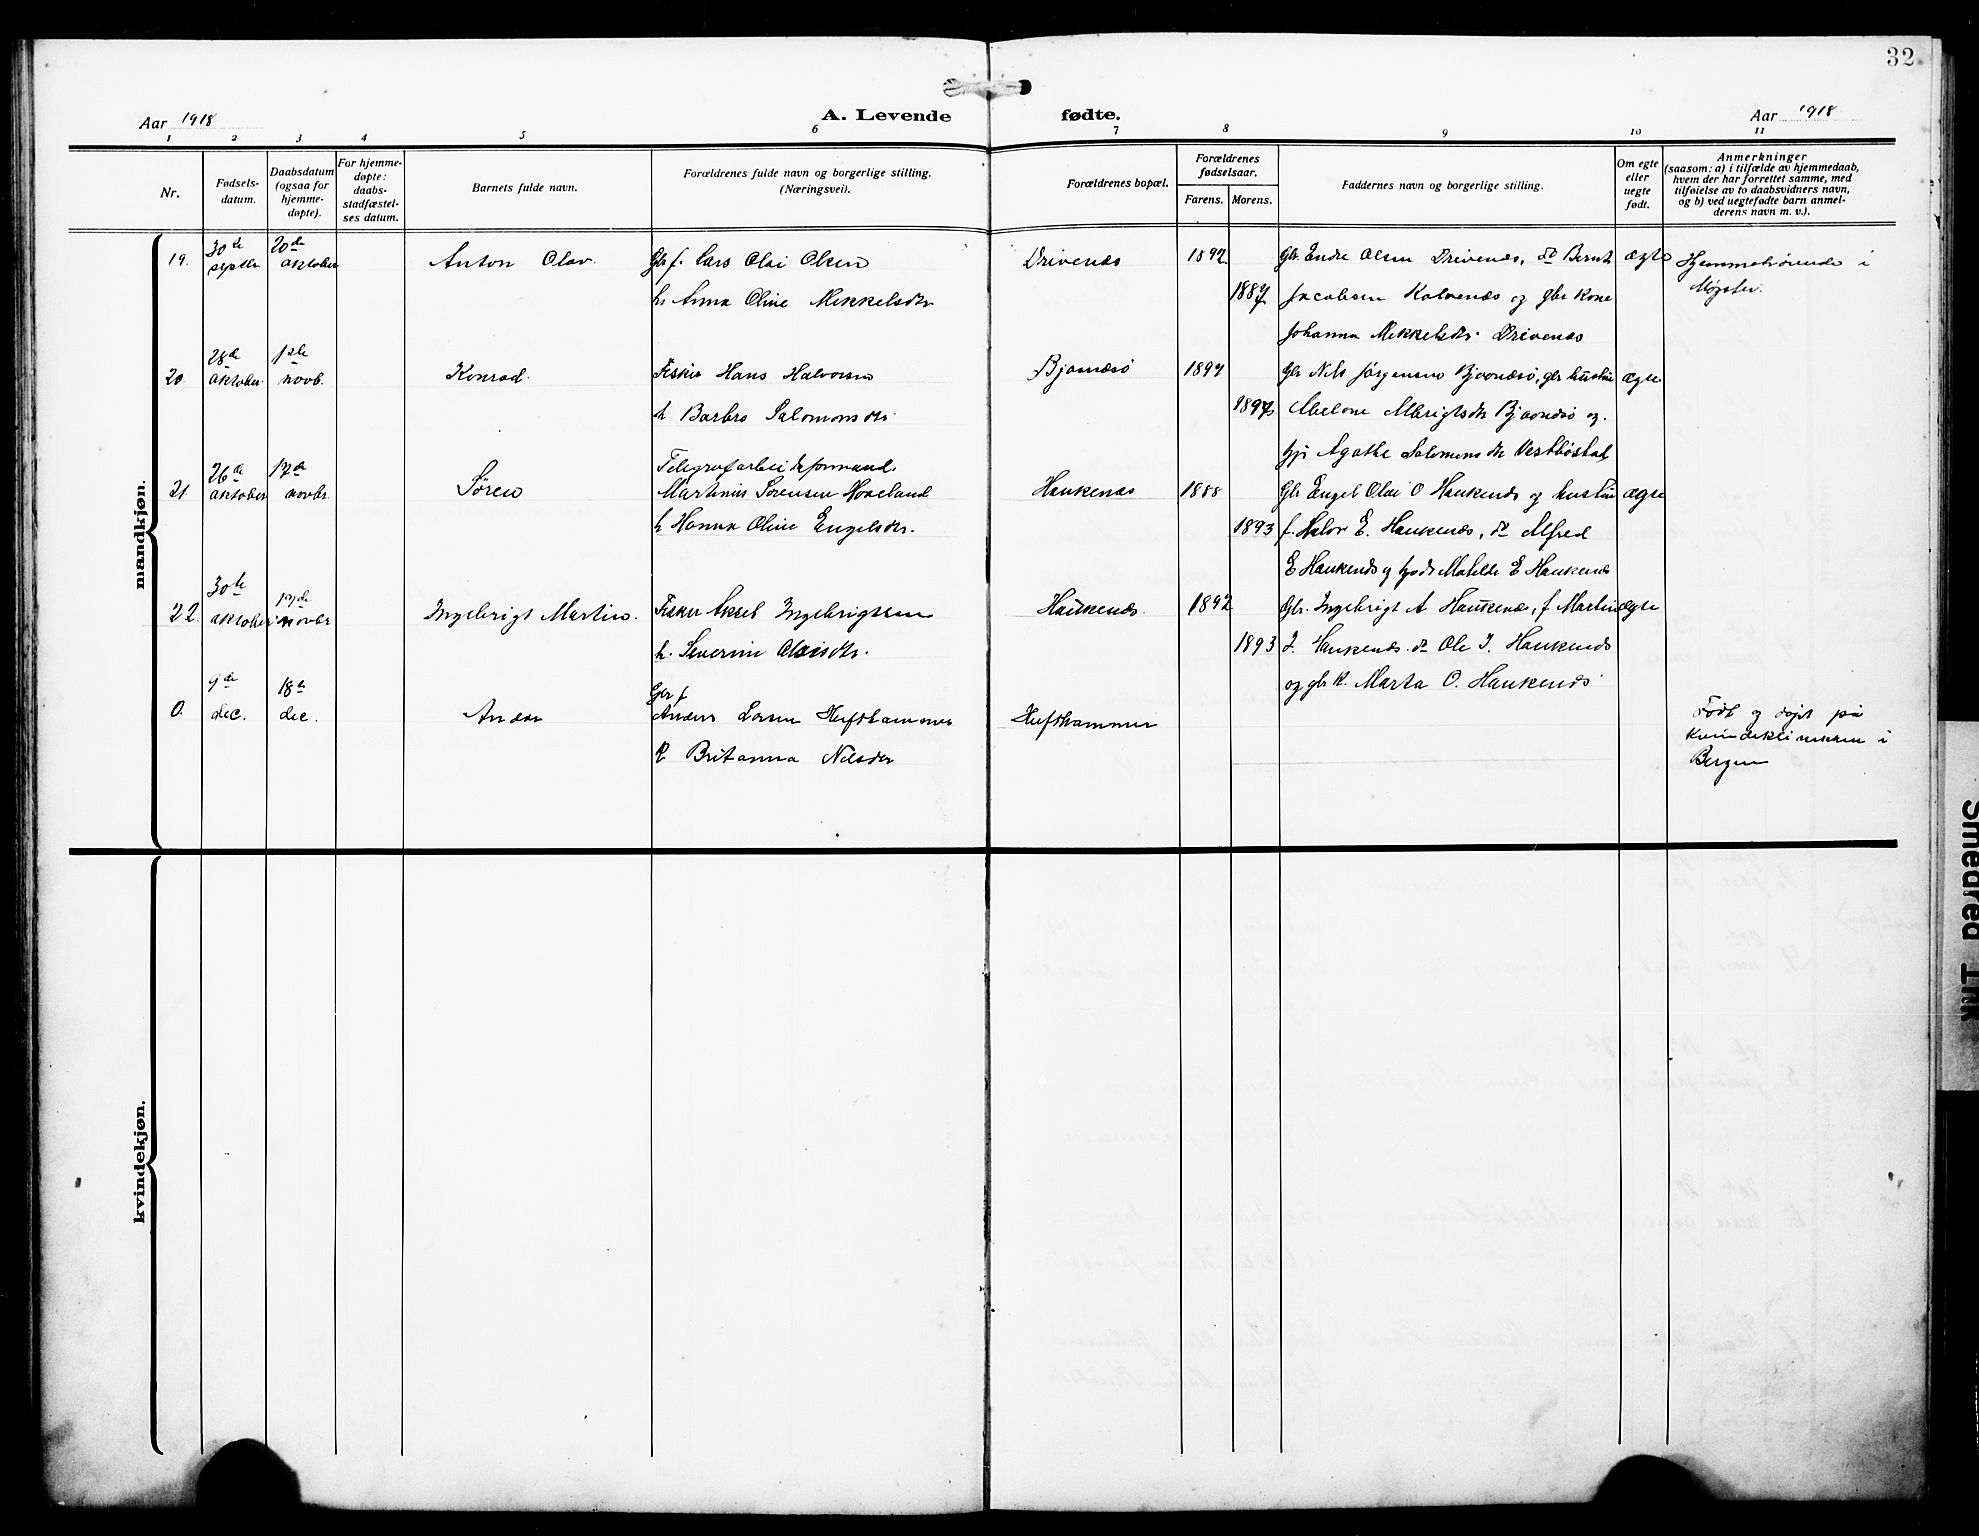 32
Aar 1918
A. Levende fødte.
Aar 1918
1 2 3 4 5 6 7 8 9 10 11
Nr.
Fødsels-
datum.
Daabsdatum
(ogsaa for
hjemme-
døpte).
For hjemme-
døpte:
daabs-
stadfæstel-
ses datum.
Barnets fulde navn.
Forældrenes fulde navn og borgerlige stilling.
(Næringsvei).
Forældrenes bopæl.
Forældrenes
fødselsaar.
Farens. Morens.
Faddernes navn og borgerlige stilling.
Om egte
eller
uegte
født.
Anmerkninger
(saasom: a) i tilfælde av hjemmedaab,
hvem der har forrettet samme, med
tilføielse av to daabsvidners navn,
og b) ved uegtefødte barn anmel-
derens navn m. v.).
mandkjøn.
19.
30te
septbr
20de
oktober
Anton Olav.
Gbr f. Lars Olai Olsen
h. Anna Oline Mikkelsdtr
Drivenæs
1892
1887
Gbr Endre Olsen Drivenæs, do Bernt
Jacobsen Kalvenæs og gbr kone
Johanna Mikkelsdtr. Drivenæs
ægte
Hjemmehørende i
Møgster.
20
28de
oktober.
1ste
novb.
Konrad.
Fisker Hans Halvorsen
h Barbro Salomonsdtr.
Bjonæsø
1897
1897
Gbr Nils Jörgensen Bjoonæsø, gbr hustru
Abelone Albrigtsdtr Bjoonæsø og
pige Agathe Salomonsdtr Vestbøstad
ægte
21.
26de
oktober
17de
novbr.
Søren
Telegrafarbeidsformand
Martinus Sørensen Hoveland
h Hanna Oline Engelsdtr.
Haukenæs
1888
1893
Gbr Engel Olai O Haukenæs og hustru
f. Halvor E. Haukenæs, do Alfred
E Haukenæs og Matilde E Haukenæs
ægte
22.
30te
oktober
17de
novbr
Ingebrigt Martin.
Fisker Aksel Ingebrigtsen
h. Severine Olaisdtr.
Haukenæs.
1892
1893
Gbr. Ingebrigt A Haukenæs, f Martin
I. Haukenæs. do Ole I. Haukenæs
og gbr k. Marta O. Haukenæs.
ægte
0.
9de
dec.
18de
dec.
Anders
Gbr f
Anders Larsen Hufthammer
k Britanna Nilsdtr
Hufthammer
Født og døpt på
Kvindeklinikken i
Bergen
kvindekjøn.
Smeared Ink